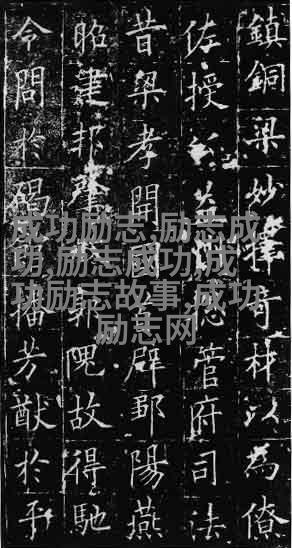 鎮銅梁妙擇奇材以為僚
佐授公益州總管府司法
昔梁孝開國首辟鄒陽燕
昭建邦肇徵郭隗故得馳
令問於碣館播芳猷於平
成功励志,励志成
功,励志成功,成
功励志故事,成功
励志网